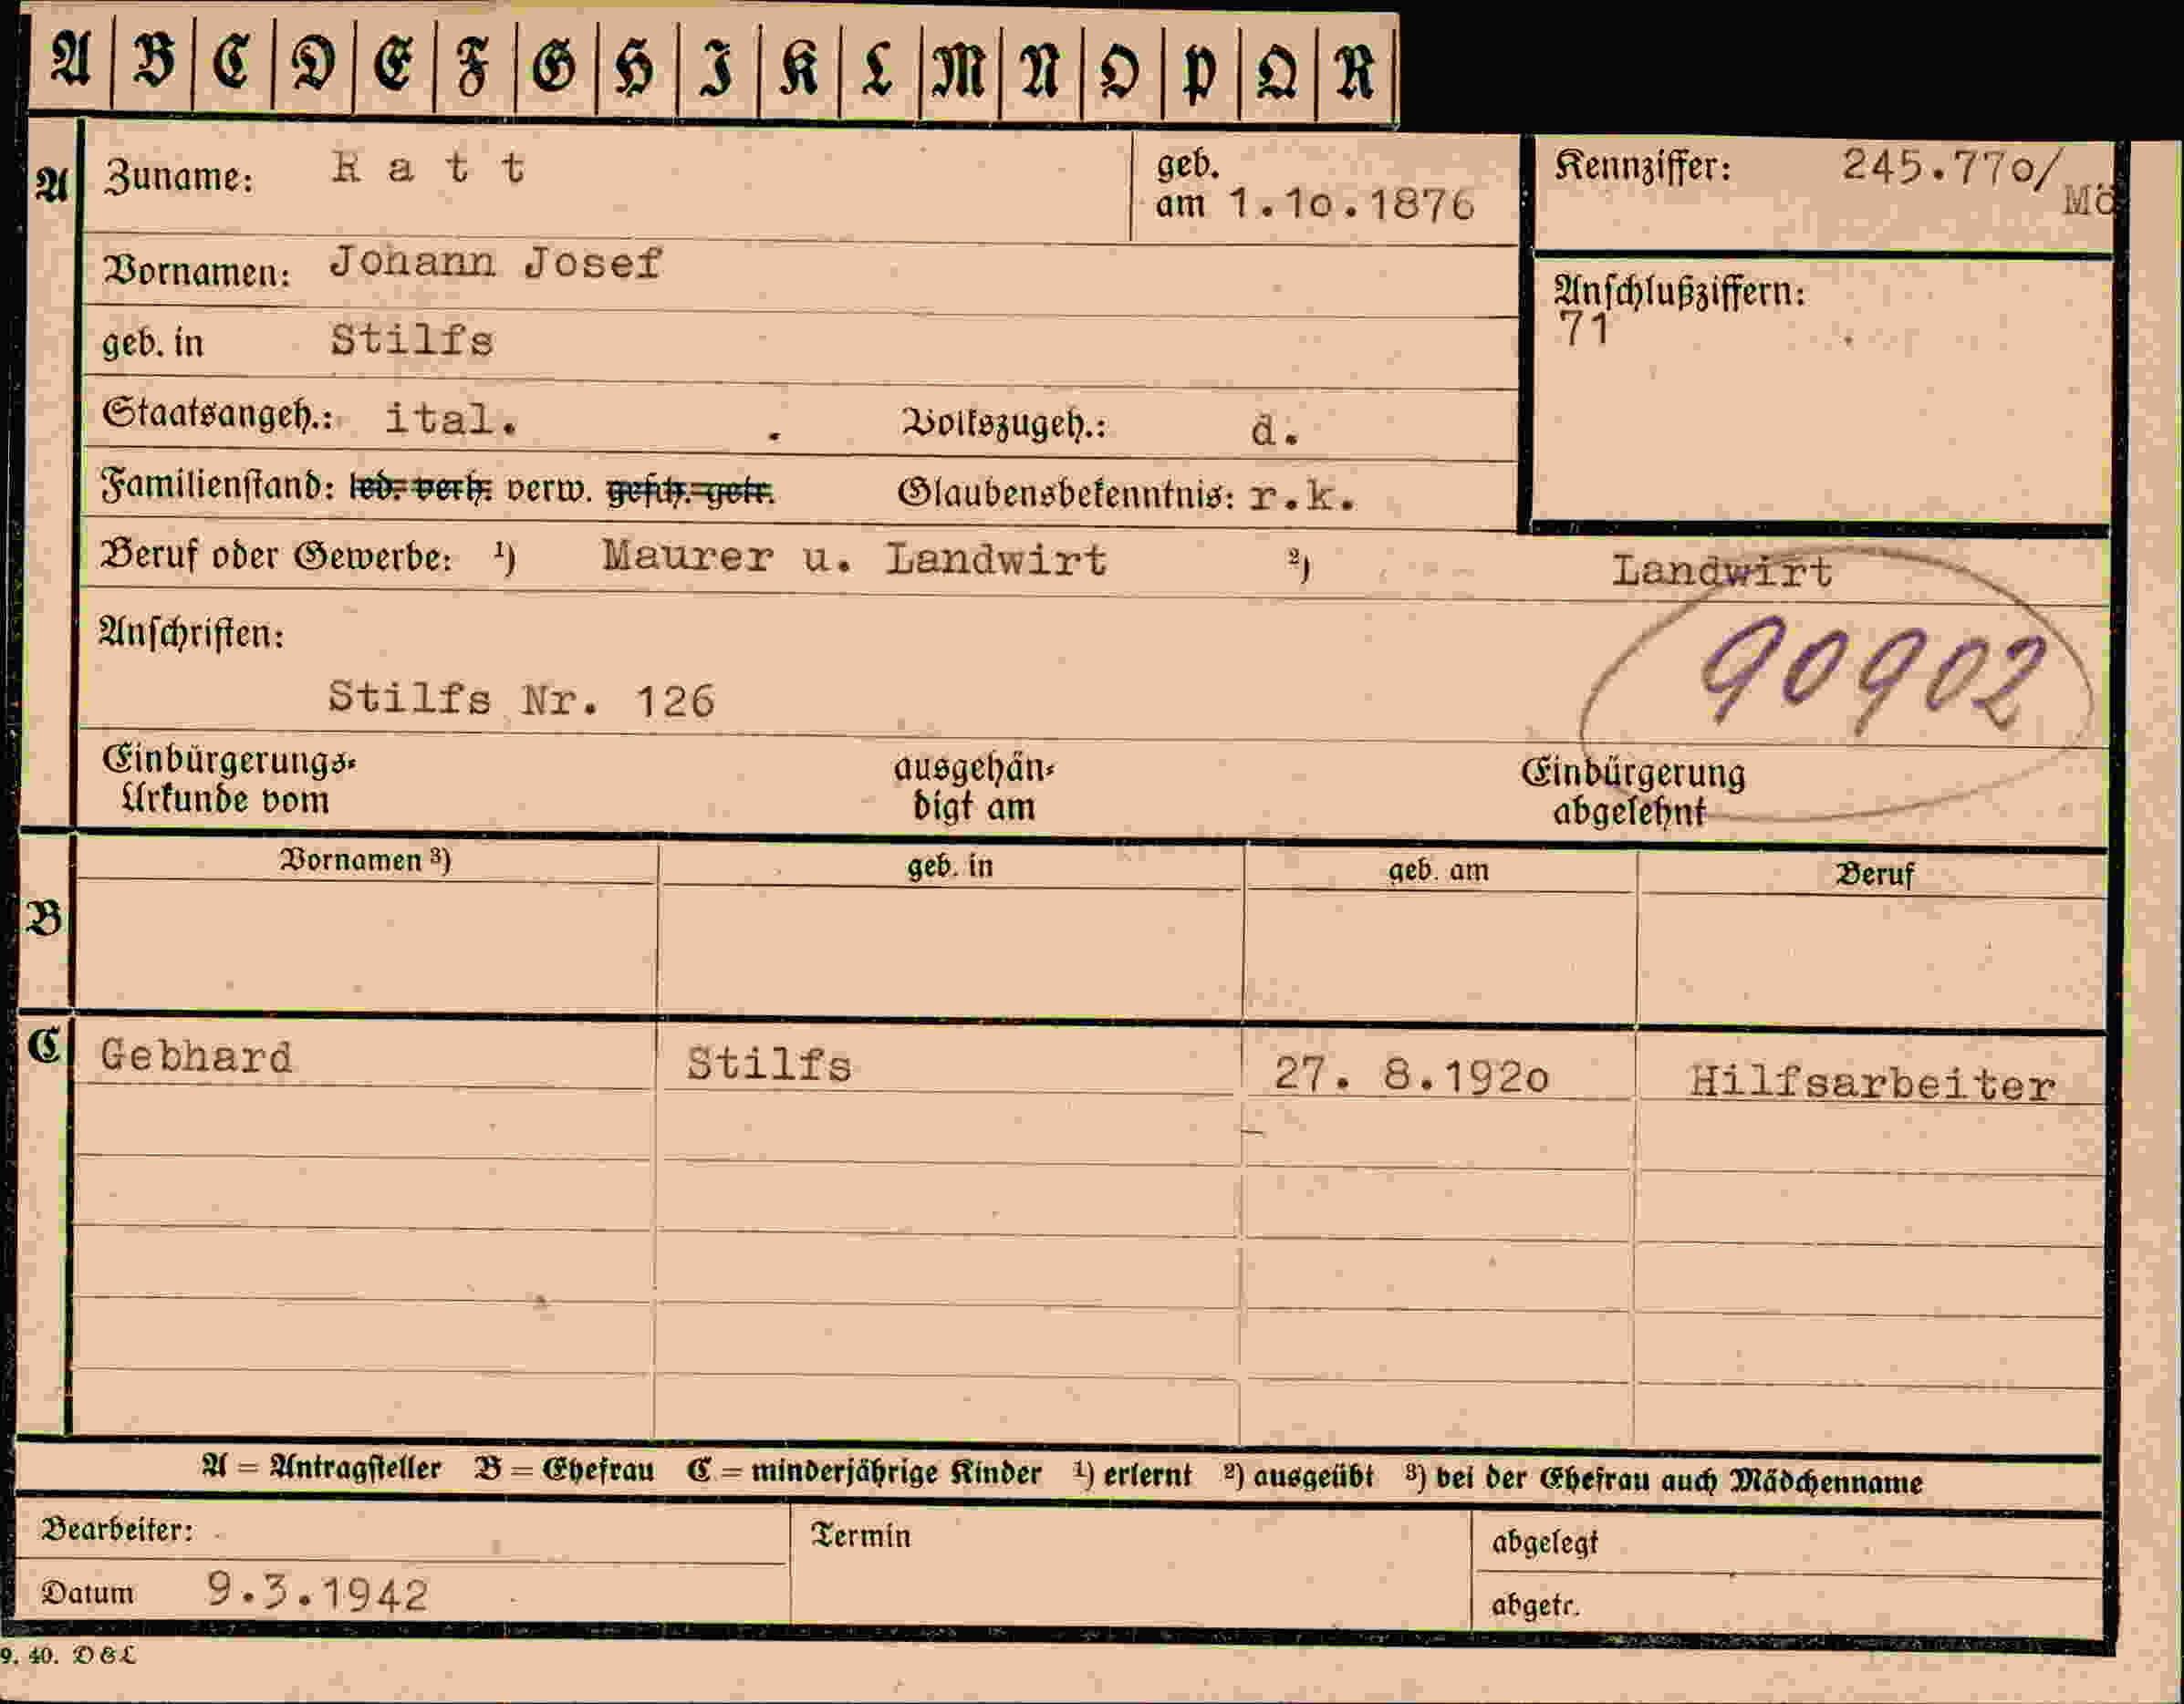 A B C D E F G H I K L M N O P Q R
A Zuname: Ratt geb. am 1.10.1876 Kennziffer: 245.770/Mö
Vornamen: Johann Josef Anschlußziffern: 71
geb. in Stilfs
Staatsangeh.: ital. Volkszugeh.: d.
Familienstand: led. verh. verw. gesch. getr. Glaubensbekenntnis: r.k.
Beruf oder Gewerbe: 1) Maurer u. Landwirt 2) Landwirt
Anschriften:
90902
Stilfs Nr. 126
Einbürgerungs- Urkunde vom ausgehän- digt am Einbürgerung abgelehnt
Vornamen 3) geb. in geb. am Beruf
B
C Gebhard Stilfs 27. 8.1920 Hilfsarbeiter
A = Antragsteller B = Ehefrau C = minderjährige Kinder 1) erlernt 2) ausgeübt 3) bei der Ehefrau auch Mädchenname
Bearbeiter: Termin abgelegt
Datum 9.3.1942 abgetr.
9. 40. D&L